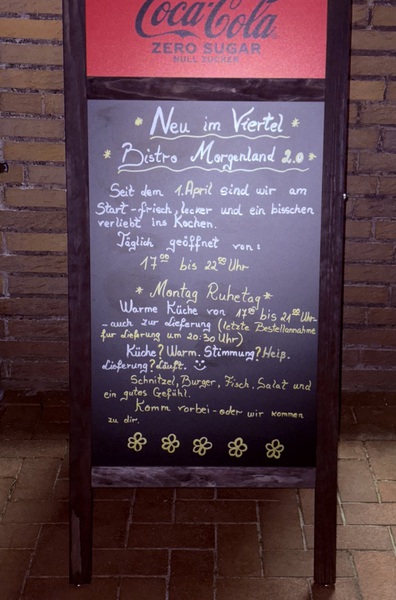 Coca-Cola
ZERO SUGAR
NULL ZUCKER
Neu im Viertel
Bistro Morgenland 2.0
Seit dem 1. April sind wir am
Start - frisch, lecker und ein bisschen
verliebt ins Kochen.
Täglich geöffnet von:
17⁰⁰ bis 22⁰⁰ Uhr
* Montag Ruhetag *
Warme Küche von 17⁰⁰ bis 21⁰⁰ Uhr
- auch zur Lieferung (letzte Bestellannahme
für Lieferung um 20:30 Uhr)
Küche? Warm. Stimmung? Heip.
Lieferung? Läuft. :)
Schnitzel, Burger, Fisch, Salat und
ein gutes Gefühl.
Komm vorbei - oder wir kommen
zu dir.